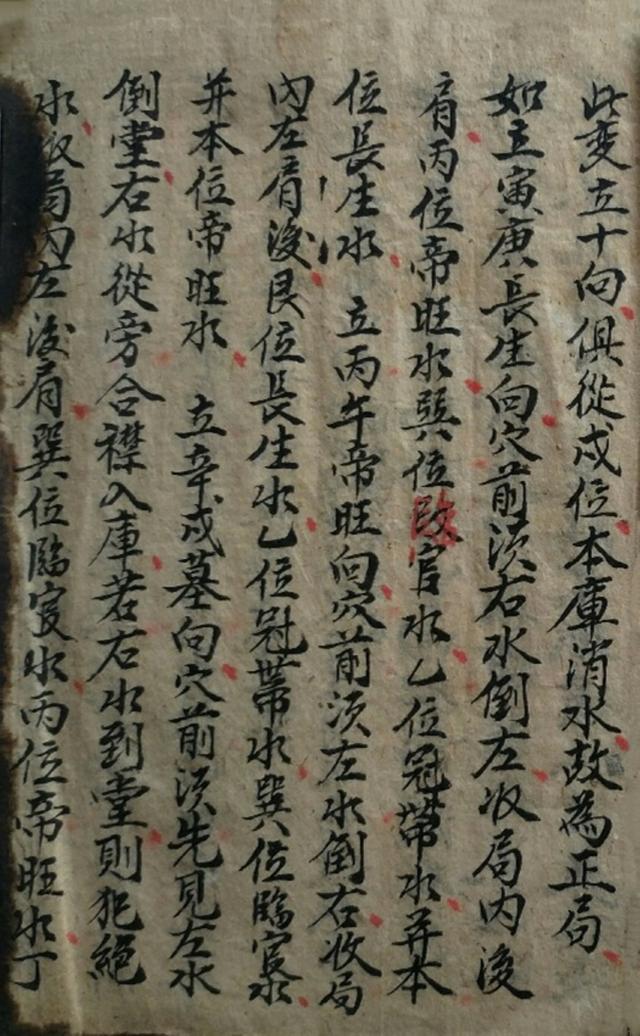 此变立十向俱從戌位本庫消水故為正局
如立寅庚長生向穴前须右水倒左收局内後
肩丙位帝旺水巽位官水乙位冠帶水并本
位長生水 立丙午帝旺向穴前须左水倒右收局
内左肩後艮位長生水乙位冠帶水巽位臨官水
并本位帝旺水 立辛戌墓向穴前须先見左水
倒堂右水從旁合襟入庫若右水到堂則犯絕
水收局内左後肩巽位臨官水丙位帝旺水丁